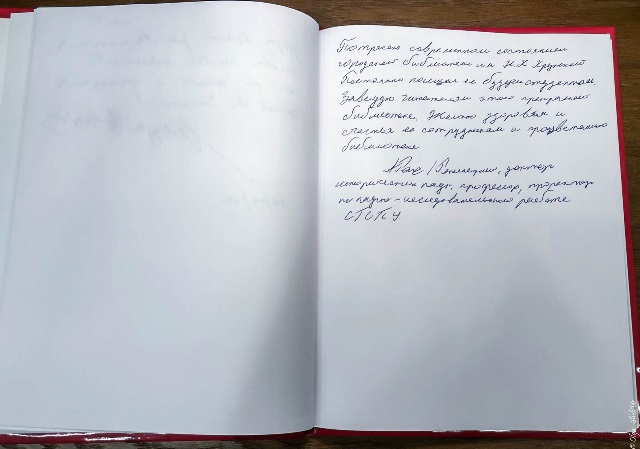 Потрясен современным состоянием
городской библиотеки им. Н.К Крупской
Постоянно посещал ее будучи студентом.
Завидую читателям этой прекрасной
библиотеки. Желаю здоровья и
счастья ее сотрудникам и процветания
библиотеке
доктор
исторических наук, профессор, проректор
по научно-исследовательской работе